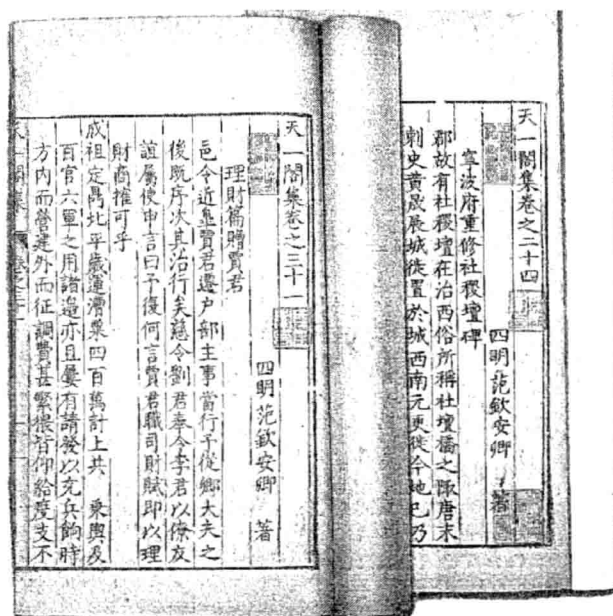 天一閣集卷之二十四
四明范欽安卿 著
寧波府重修社稷壇碑
郡故有社稷壇在治西俗所稱社壇橋之陬唐末
刺史黄晟展城徙置於城西南元更徙今地已乃
天一閣集卷之三十一
四明范欽安卿 著
理財篇贈賈君
邑令近皐賈君遷户部主事當行予從鄉大夫之
後既序次其治行矣慈令劉君奉令李君以僚友
誼屬使申言曰予復何言賈君職司財賦即以理
財商搉可乎
成祖定鼎北平歲運漕粟四百萬計上共 乘輿及
百官六軍之用諸邉亦且屢有請發以充兵餉時
方内而營建外而征調費甚繁猥皆仰給度支不
天一閣集